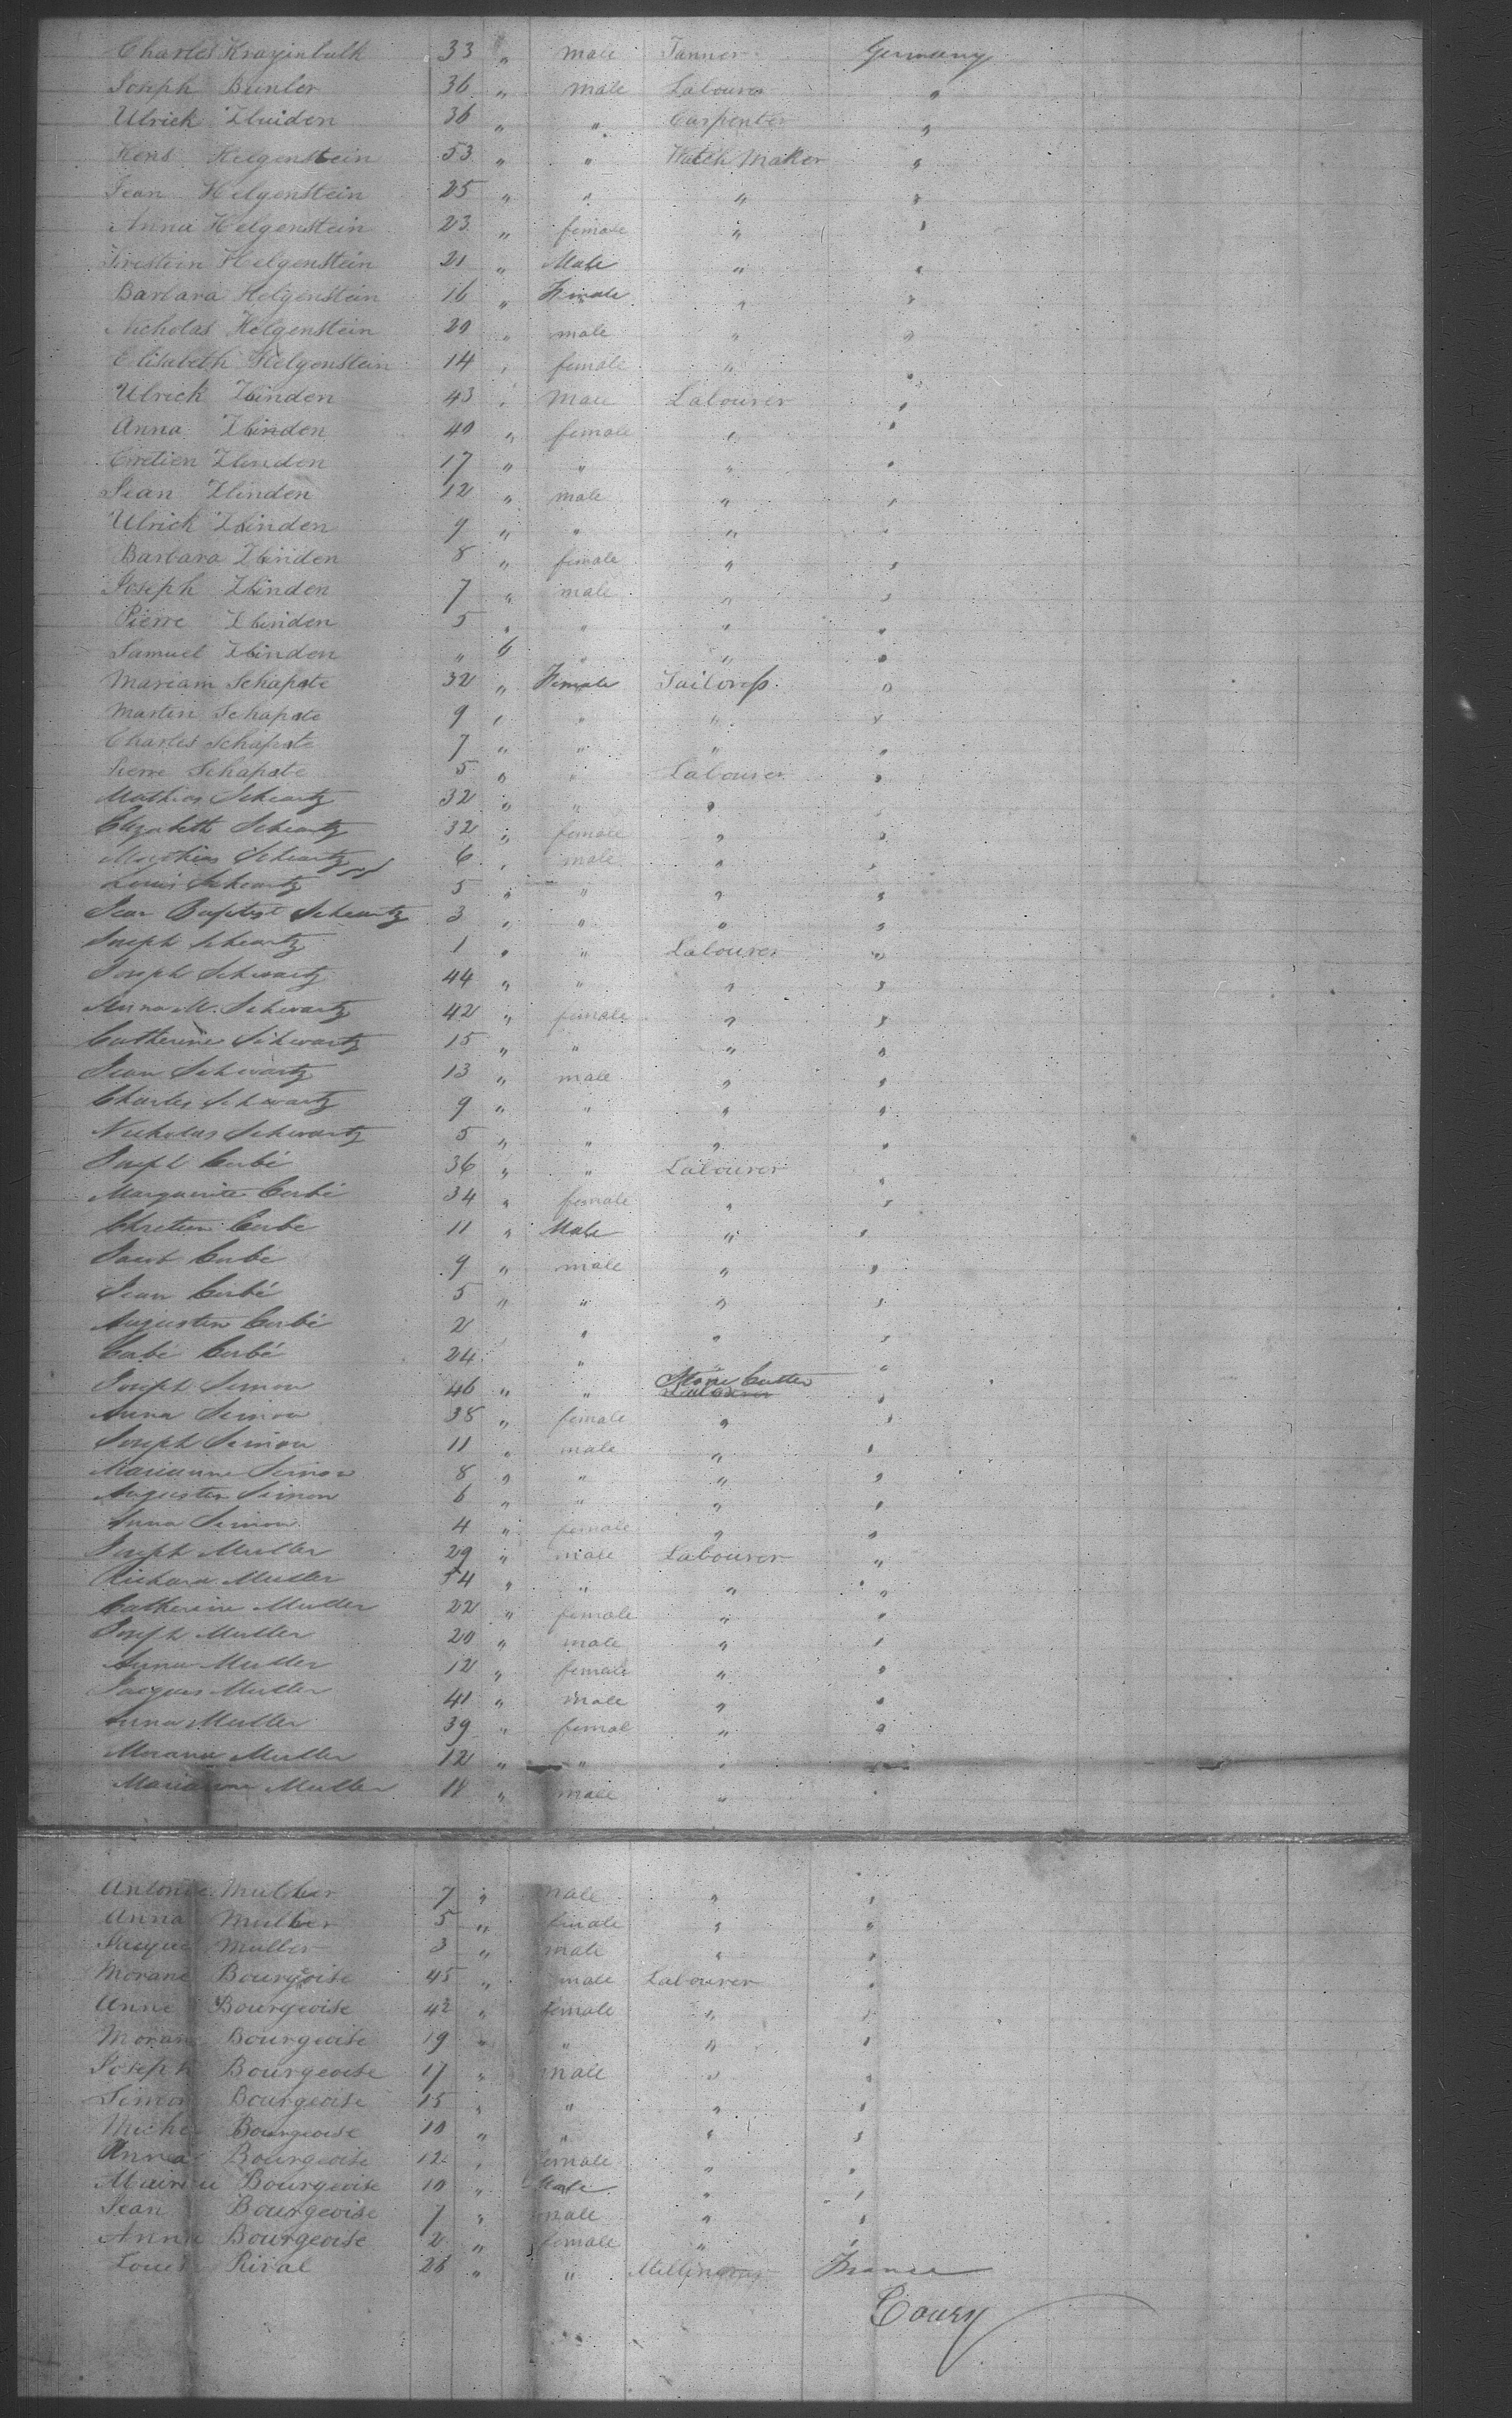 Charles Krayinbulh 33 " male Tanner Germany
Joseph Bunler 36 " male Labourer "
Ulrick Zbinden 36 " " Carpenter "
Helgenstein 53 " " Watch Maker "
Jean Helgenstein 25 " " " "
Anna Helgenstein 23 " female " "
Helgenstein 21 " Male " "
Barbara Helgenstein 16 " Female " "
Nicholas Helgenstein 20 " male " "
Elisabeth Helgenstein 14 " female " "
Ulrick Zbinden 43 " Male Labourer "
Anna Zbinden 40 " female " "
Cretien Zbinden 17 " " " "
Jean Zbinden 12 " male " "
Ulrick Zbinden 9 " " " "
Barbara Zbinden 8 " female " "
Joseph Zbinden 7 " male " "
Pierre Zbinden 5 " " " "
Samuel Zbinden " 6 " " "
Mariam Schapate 32 " Female Tailoress "
Martin Schapate 9 " " " "
Charles Schapate 7 " " " "
Pierre Schapate 5 " " Labourer "
Mathias Schwartz 32 " " " "
Elizabeth Schwartz 32 " female " "
Mathias Schwartz 6 " male " "
Louis Schwartz 5 " " " "
Jean Baptist Schwartz 3 " " " "
Joseph Schwartz 1 " " Labourer "
Joseph Schwartz 44 " " " "
Anna M. Schwartz 42 " female " "
Catherine Schwartz 15 " " " "
Jean Schwartz 13 " male " "
Charles Schwartz 9 " " " "
Nicholas Schwartz 5 " " " "
Joseph Cerbé 36 " " Labourer "
Marguerite Cerbé 34 " female " "
Chretien Cerbe 11 " Male " "
Jacob Cerbé 9 " male " "
Jean Cerbé 5 " " " "
Augustin Cerbé 2 " " " "
Cerbé 24 " " "
Joseph Simon 46 " " Stone Cutter Labourer "
Anna Simon 38 " female " "
Joseph Simon 11 " male " "
Marianne Simon 8 " " " "
Augustin Simon 6 " " " "
Anna Simon 4 " female " "
Joseph Muller 29 " male Labourer "
Richard Muller 54 " " " "
Catherine Muller 22 " female " "
Joseph Muller 20 " male " "
Anna Muller 12 " female " "
Jacques Muller 41 " male " "
Anna Muller 39 " femal " "
Morana Muller 12 " " " "
Marianne Muller 18 " male " "
Antoine Muller 7 " male " "
Anna Muller 5 " female " "
Jacque Muller 3 " male " "
Morand Bourgoise 45 " male Labourer "
Anne Bourgeoise 42 " female " "
Moran Bourgeoise 19 " " " "
Joseph Bourgeoise 17 " male " "
Simon Bourgeoise 15 " " " "
Miche Bourgeoise 10 " " " "
Anna Bourgeoise 12 " female " "
Bourgeoise 10 " Male " "
Jean Bourgeoise 7 " male " "
Anna Bourgeoise 2 " female " "
Louis Rival 26 " " France
Coury